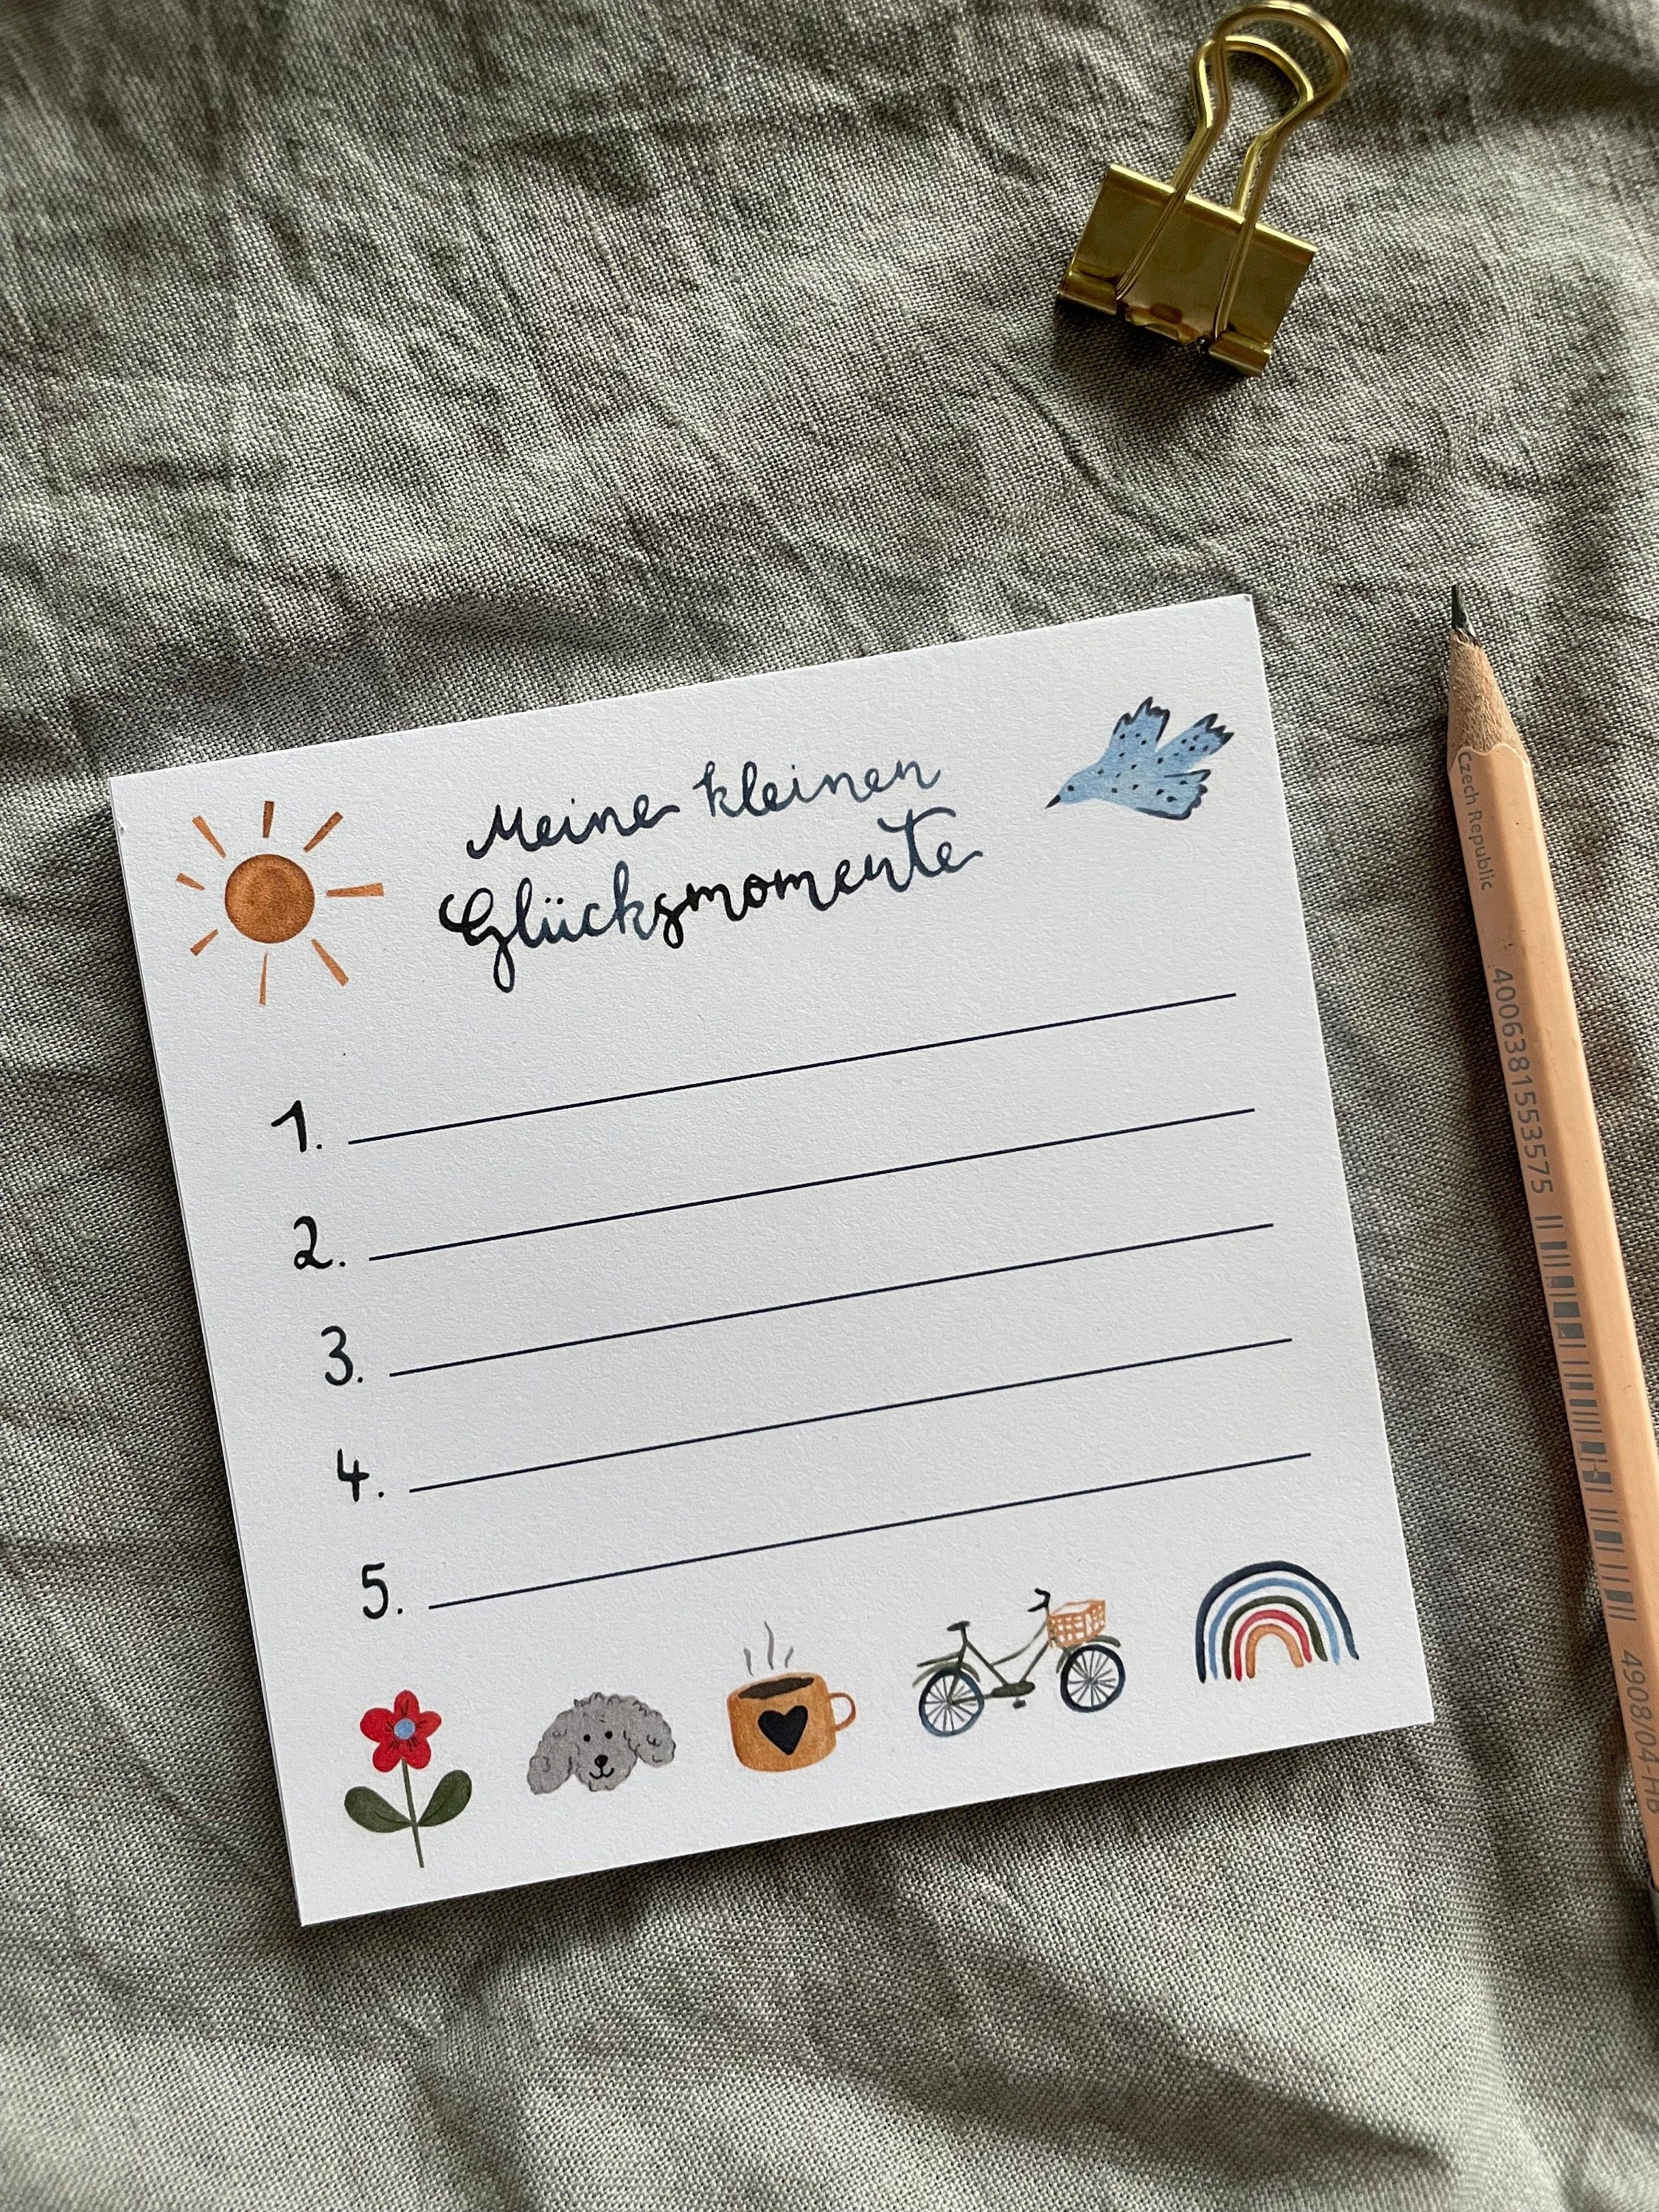 Meine kleinen
Glücksmomente
1.
2.
3.
4.
5.
Czech Republic
4006381553575
4908/04-HB